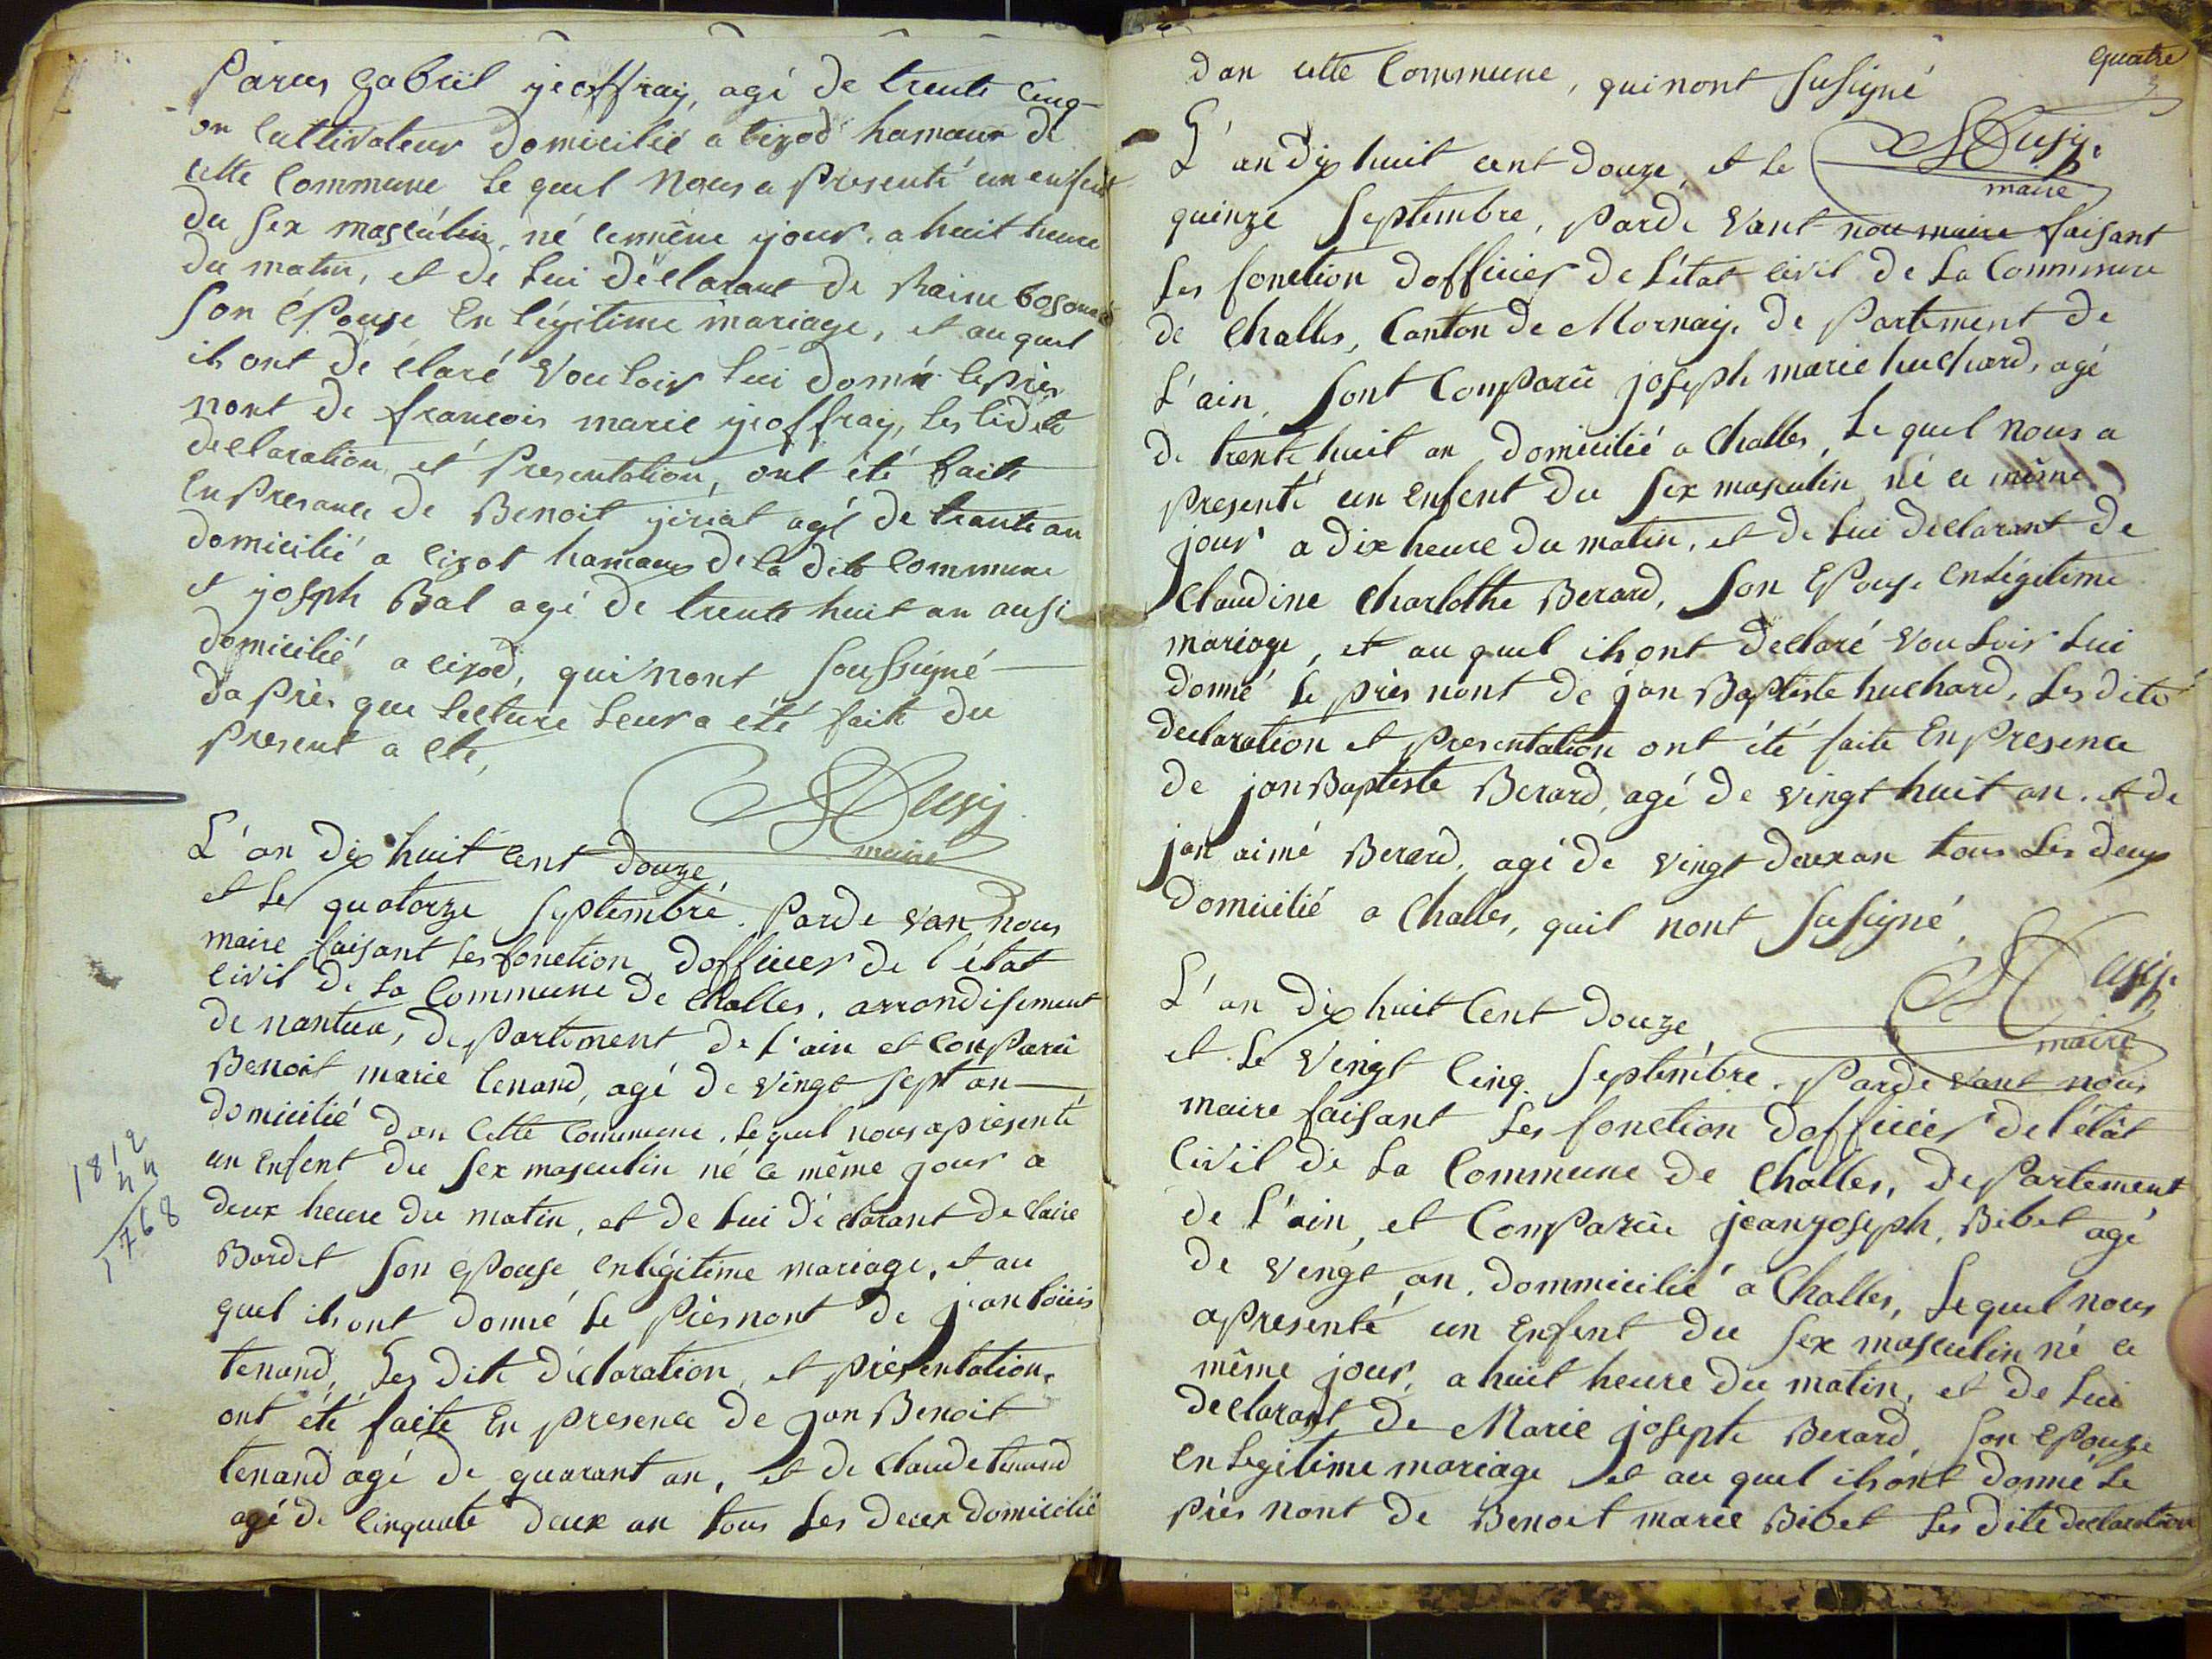 Parus gabriel geoffray, agé de trente cinq
an cultivateur domicilié a cizod hamaux de
cette Commune le quel nous a presenté un enfent
du sex masculin, né cemême jour, a huit heure
du matin, et de lui déclarant de Raine
son épouse en légitime mariage, et au quel
ils ont de claré vouloir lui donné le près
nont de francois marie geoffray, les lidite
declaration et presentation, ont été faite
en presance de Benoit giriat agé de trante an
domicilié a cizot hamaux de la dite Commune
et joseph Bal agé de trente huit an ausi
domicilié a cizod, qui nont soussigné
daprès que lecture leur a été faite du
present acte,
maire
L'an dix huit cent douze
et le quatorze septembre. Parde van nous
maire faisant les fonction dofficier de l'état
civil de la Commune de Challes, arrondisement
de nantua, departement de l'ain et Conparû
Benoit marie tenand, agé de vingt sept an
domicilié dan cette Commune, le quel nous apresenté
un enfent du sex masculin né ce même jour a
deux heure du matin, et de lui déclarant de claire
Bordet son epouse en légitime mariage, et au
quel ils ont donné le prèsnont de jan loüis
tenand, les dite déclaration, et présentation,
ont été faite en presence de jan Benoit
tenand agé de quarant an, et de claude tenand
agé de cinquate deux an tous les deux domicilié
1812
44
1768
quatre
dan cette Commune, qui nont susigné
maire
L'an dix huit cent douze, et le
quinze septembre, parde vant nou maire faisant
les fonction dofficier de l'état civil de la Commune
de Challes, Canton de Mornay, de partement de
l'ain, sont Comparû joseph marie huchard, agé
de trente huit an domicilié a Challes, le quel nous a
presenté un enfent du sex masculin né ce même
jour a dix heure du matin, et de lui declarant de
Claudine charlothe Berard, son epouse en légitime
mariage, et au quel ils ont declaré vouloir lui
donné le près nont de jan Baptiste huchard, les dite
declaration et presentation ont été faite en presence
de jan Baptiste Berard, agé de vingt huit an. et de
jan aimé Berard, agé de vingt deux an tous les deux
domicilié a Challes, quil nont susigné,
maire
L'an dix huit Cent douze
et le vingt cinq septembre. Parde vant nous
maire faisant les fonction dofficier de l'état
civil de la Commune de Challes, departement
de l'ain, et Comparûe jean joseph, Bibet agé
de vengt an, dommicilié a Challes, le quel nous
apresenté un enfent du sex masculin né ce
même jour, a huit heure du matin, et de lui
declarant de Marie josephe Berard, son epouze
en legitime mariage et au quel ils ont donné le
près nont de Benoit marie Bibet les dite declaration